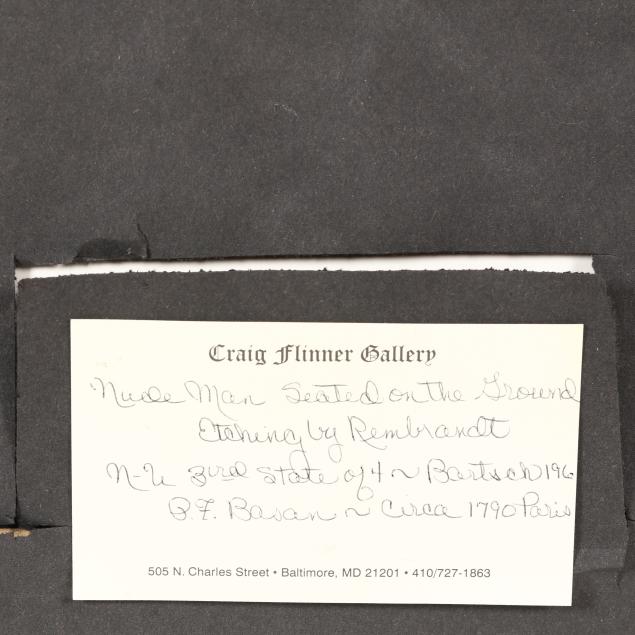 Craig Flinner Gallery
Nude Man Seated on the Ground
Etching by Rembrandt
N-U 3rd State of 4 ~ Bartsch 196
P.F. Basan ~ Circa 1790 Paris
505 N. Charles Street • Baltimore, MD 21201 • 410/727-1863